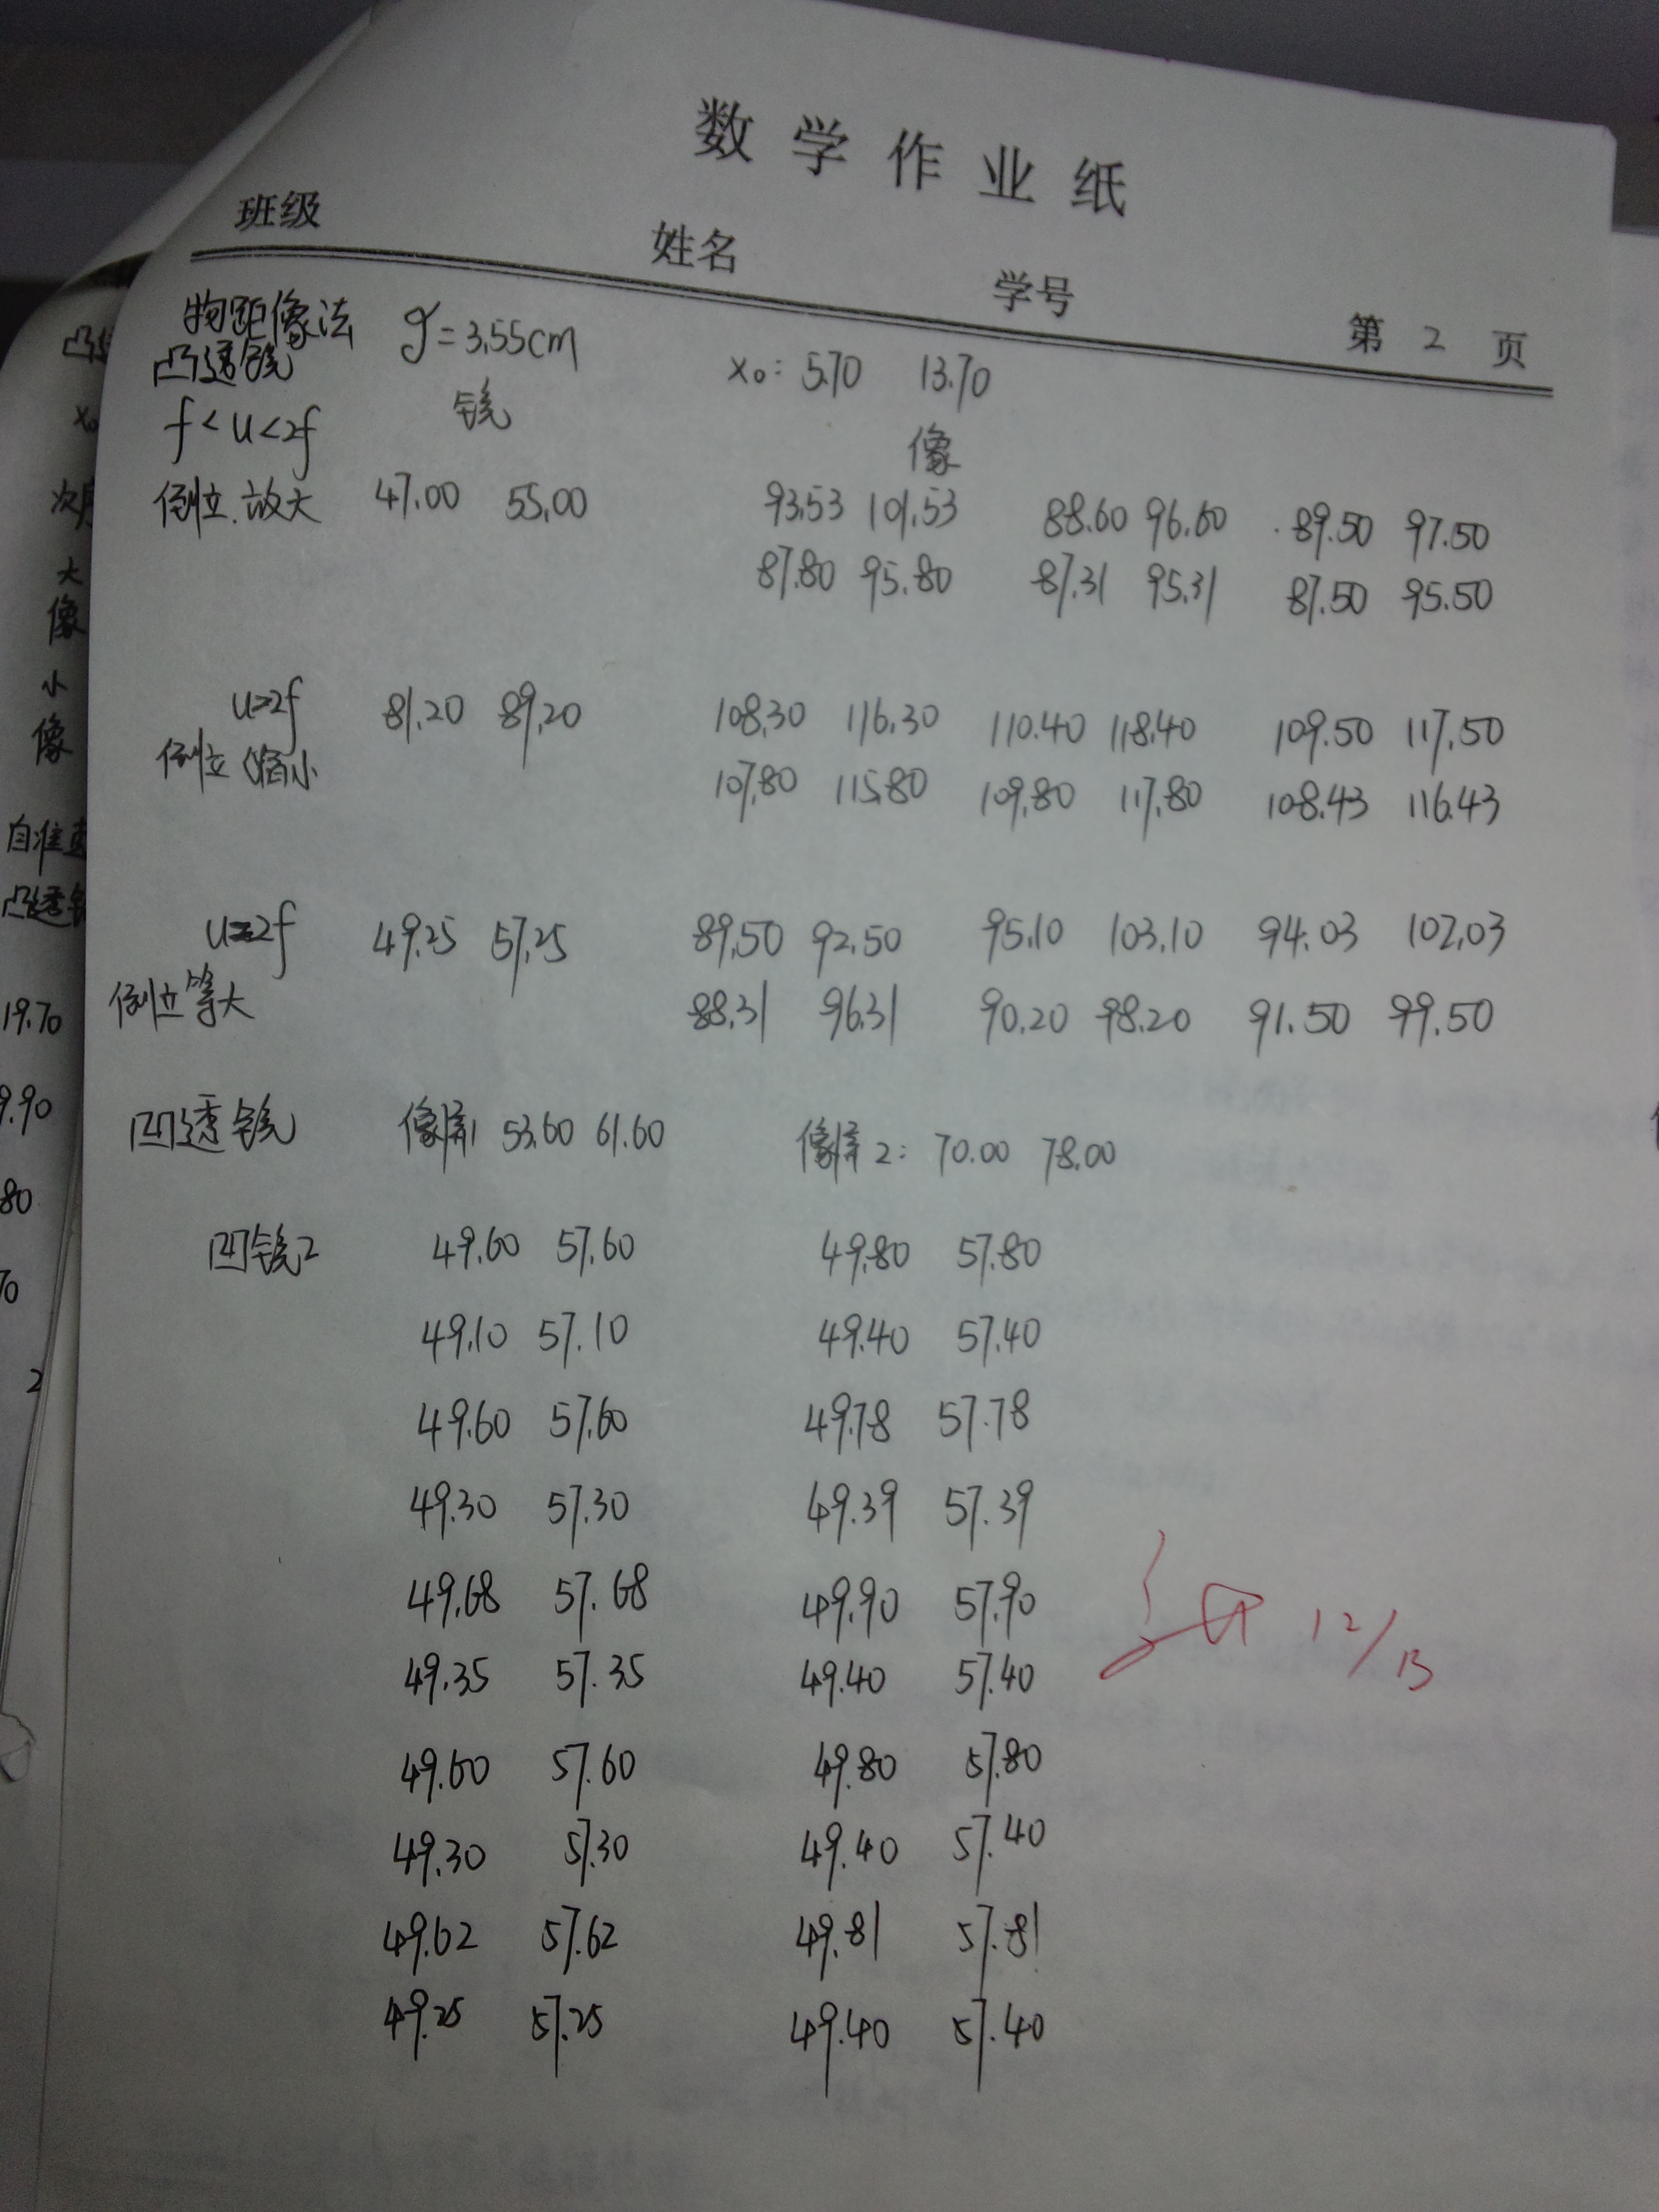 数学作业纸
班级 姓名 学号 第 2 页
物距像法 g=3.55cm x₀: 5.70 13.70
凸透镜
f<u<2f 镜 像
倒立.放大 47.00 55.00 93.53 101.53 88.60 96.60 89.50 97.50
87.80 95.80 87.31 95.31 87.50 95.50
u>2f 81.20 89.20 108.30 116.30 110.40 118.40 109.50 117.50
倒立缩小 107.80 115.80 109.80 117.80 108.43 116.43
u=2f 49.25 57.25 89.50 92.50 95.10 103.10 94.03 102.03
倒立等大 88.31 96.31 90.20 98.20 91.50 99.50
凹透镜 像屏1 53.60 61.60 像屏2: 70.00 78.00
凹镜2 49.60 57.60 49.80 57.80
49.10 57.10 49.40 57.40
49.60 57.60 49.78 57.78
49.30 57.30 49.39 57.39
49.68 57.68 49.90 57.90
49.35 57.35 49.40 57.40
12/13
49.60 57.60 49.80 57.80
49.30 57.30 49.40 57.40
49.62 57.62 49.81 57.81
49.25 57.25 49.40 57.40
大
像
小
像
19.70
9.90
80
70
2